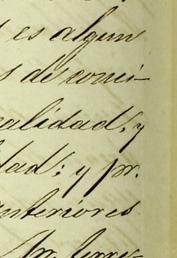 es algun
s de conci-
calidad, y
dad; y pr.
anteriores